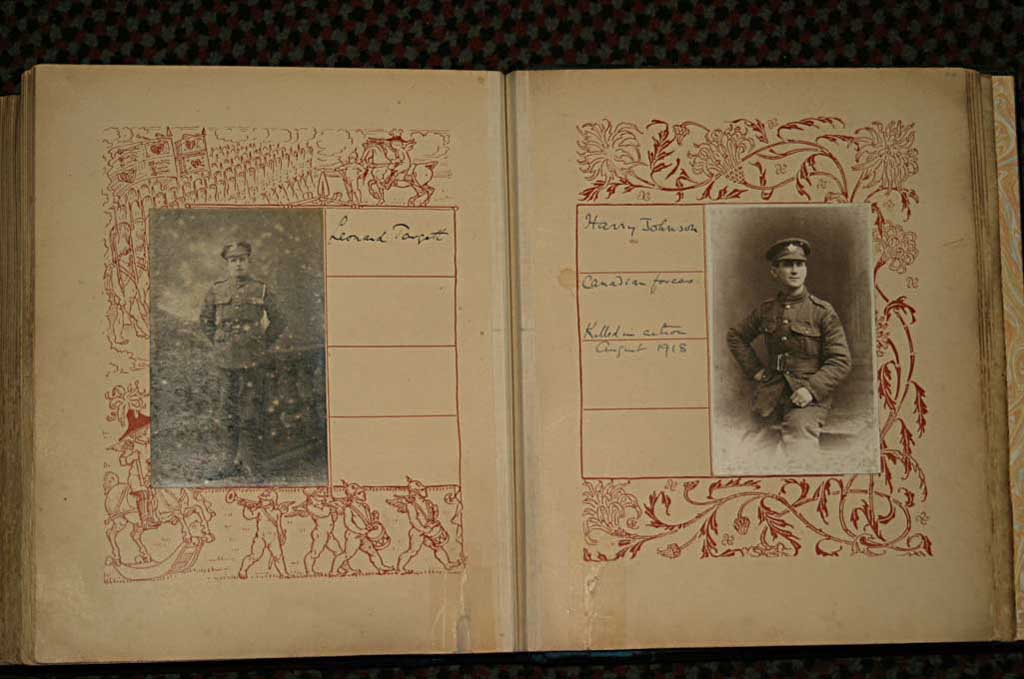 Leonard Targett
Harry Johnson
Canadian forces
Killed in action
August 1918